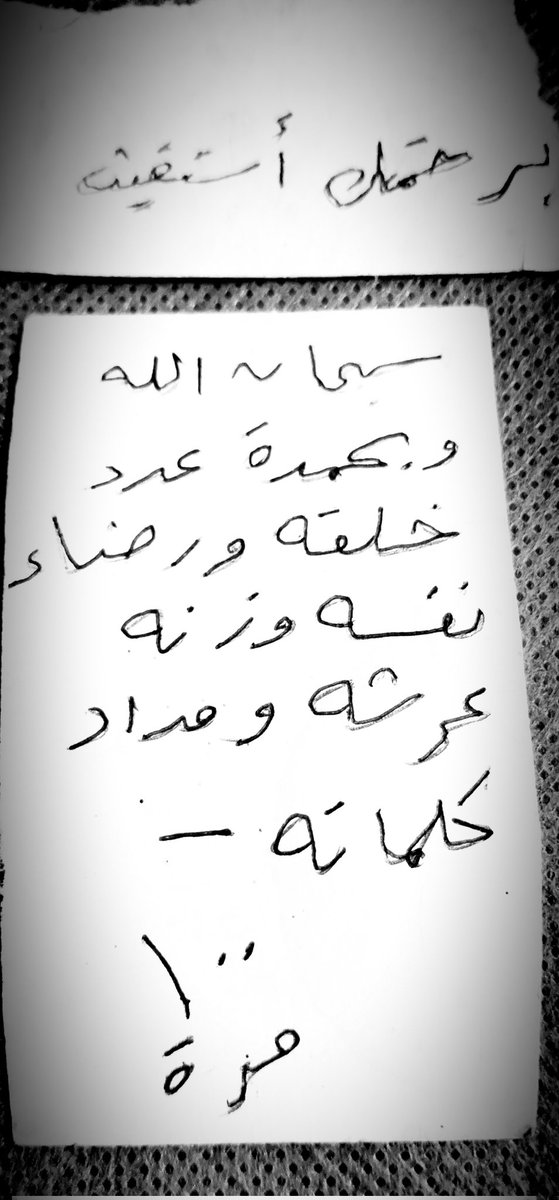 برحمتك أستغيث
سبحان الله
وبحمدة عدد
خلقه ورضاء
نفسه وزنه
عرشه ومداد
كلماته –
١٠٠
مرة